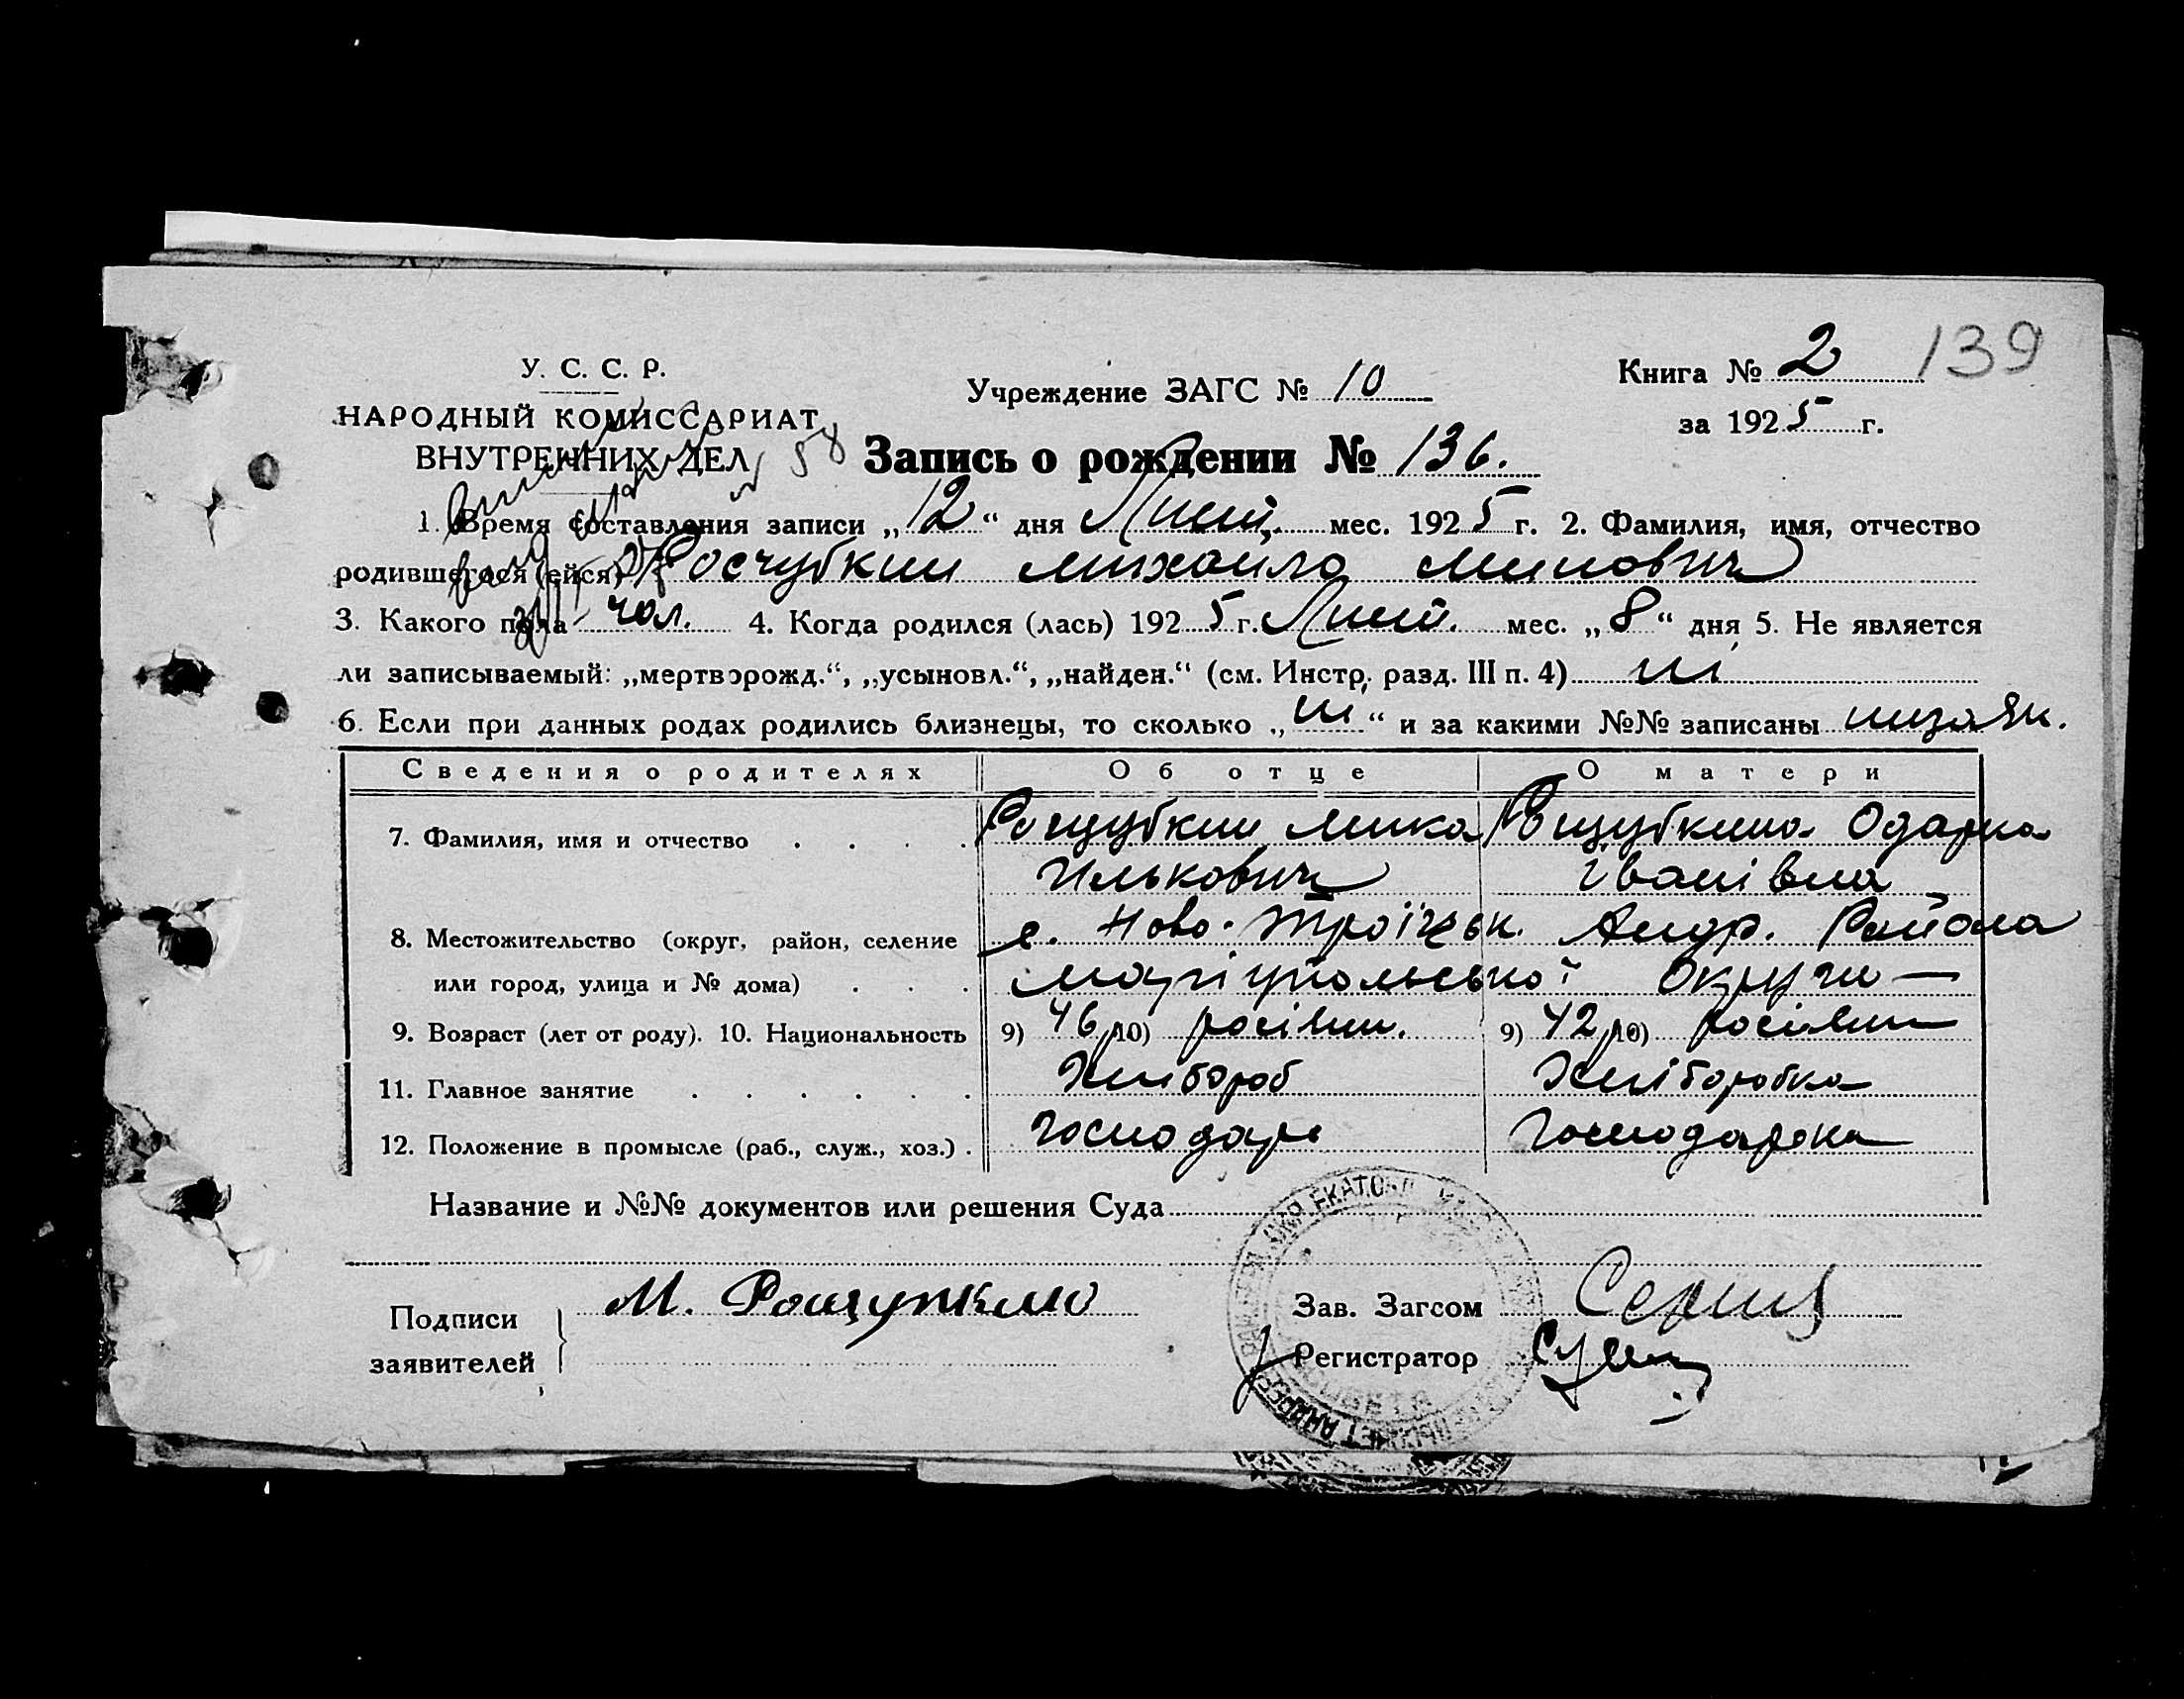 У. С. С. Р.
НАРОДНЫЙ КОМИССАРИАТ
ВНУТРЕННИХ ДЕЛ
Учреждение ЗАГС № 10
Книга № 2 139
за 1925 г.
Запись о рождении № 136.
1. Время составления записи „12“ дня мес. 1925 г. 2. Фамилия, имя, отчество
родившегося (ейся) Росчубкин Михаило
3. Какого пола чол. 4. Когда родился (лась) 1925 г. мес. „8“ дня 5. Не является
ли записываемый: „мертворожд.“, „усыновл.“, „найден.“ (см. Инстр. разд. III п. 4) ні
6. Если при данных родах родились близнецы, то сколько „ні“ и за какими №№ записаны
Сведения о родителях Об отце О матери
7. Фамилия, имя и отчество . . . . Рощубкин Рощубкина Одарка
Илькович Іванівна
8. Местожительство (округ, район, селение с. Ново-Троїцьк. Андр. Района
или город, улица и № дома) . . . Маріупольської Округи —
9. Возраст (лет от роду). 10. Национальность 9) 46 р 10) 9) 42 р 10)
11. Главное занятие . . . . . . Хлібороб Хліборобка
12. Положение в промысле (раб., служ., хоз.) . Господарь Господарка
Название и №№ документов или решения Суда
Подписи
заявителей
М. Рощупкино
Зав. Загсом
Регистратор